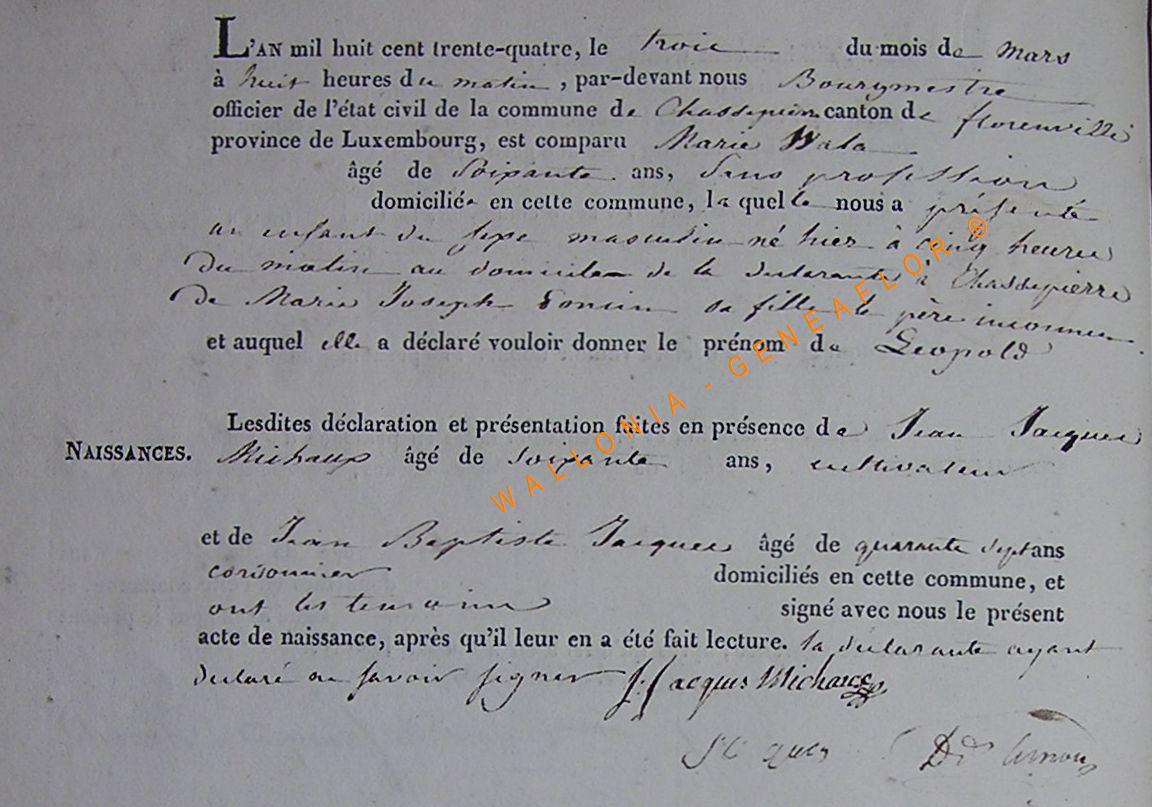 L'AN mil huit cent trente-quatre, le trois du mois de mars
à huit heures du matin, par-devant nous Bourgmestre
officier de l'état civil de la commune de Chassepierre canton de florenville
province de Luxembourg, est comparu Marie Wala
âgé de Soixante ans, Sans profession
domiciliée en cette commune, la quelle nous a présenté
un enfant du sexe masculin né hier à cinq heures
du matin au domicile de la déclarante à Chassepierre
de Marie Joseph sa fille le père inconnu
et auquel elle a déclaré vouloir donner le prénom de Léopold
Lesdites déclaration et présentation faites en présence de Jean Jacques
NAISSANCES. Michaux âgé de soixante ans, cultivateur
et de Jean Baptiste Jacques âgé de quarante sept ans
cordonnier domiciliés en cette commune, et
ont les temoins signé avec nous le présent
acte de naissance, après qu'il leur en a été fait lecture. la déclarante ayant
declaré ne savoir signer J. Jacques Michaux
WALLONIA - GENEAFLOR ®